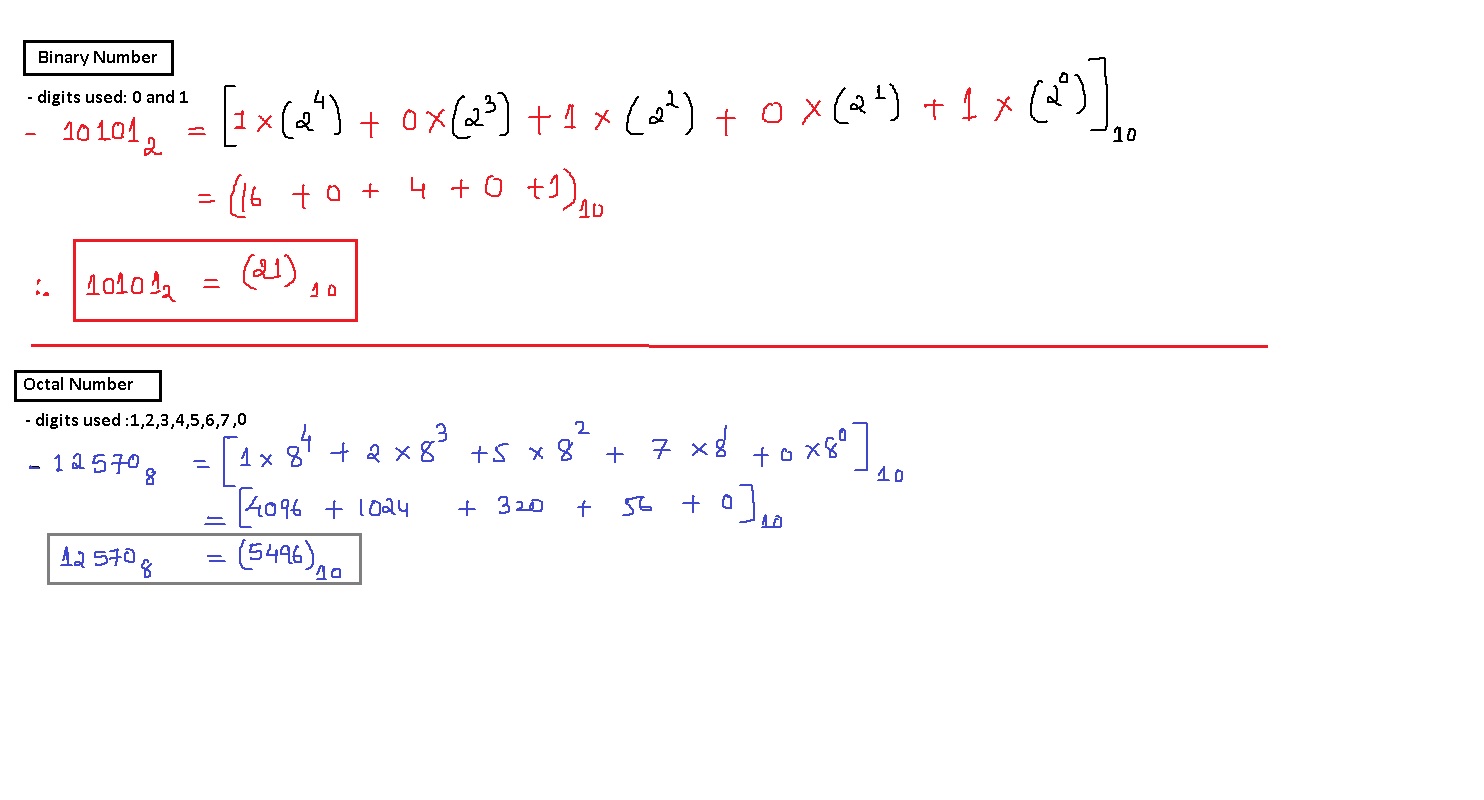 Binary Number
- digits used: 0 and 1
- 10101₂ = [1 × (2⁴) + 0 × (2³) + 1 × (2²) + 0 × (2¹) + 1 × (2⁰)]₁₀
= (16 + 0 + 4 + 0 + 1)₁₀
∴ 10101₂ = (21)₁₀
Octal Number
- digits used :1,2,3,4,5,6,7,0
- 12570₈ = [1 × 8⁴ + 2 × 8³ + 5 × 8² + 7 × 8¹ + 0 × 8⁰]₁₀
= [4096 + 1024 + 320 + 56 + 0]₁₀
12570₈ = (5496)₁₀